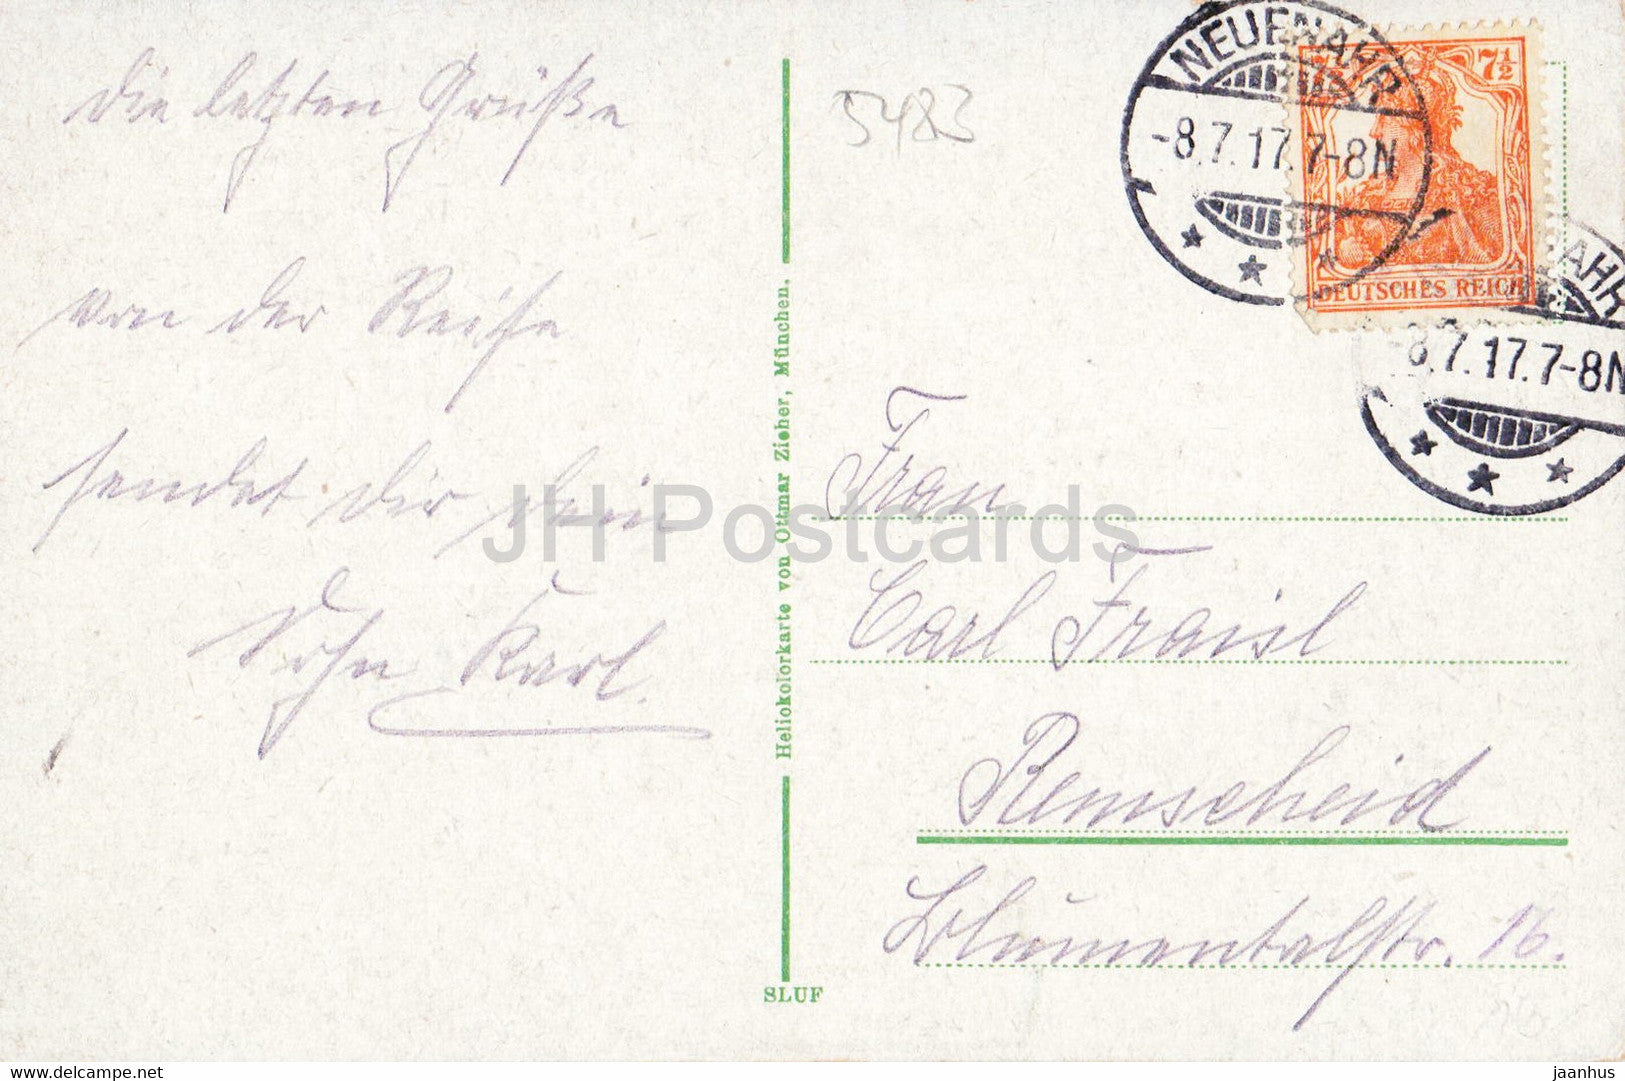 die letzten Grüße
von der Reise
sendet dir dein
Sohn Karl.
5483
NEUENAHR
-8.7.17.7-8N
7½
DEUTSCHES REICH
AHR
-8.7.17.7-8N
Heliokolorkarte von Ottmar Zieher, München.
SLUF
Frau
Carl Fraisl
Remscheid
Blumentalstr. 16.
JH Postcards
delcampe.net
jaanhus